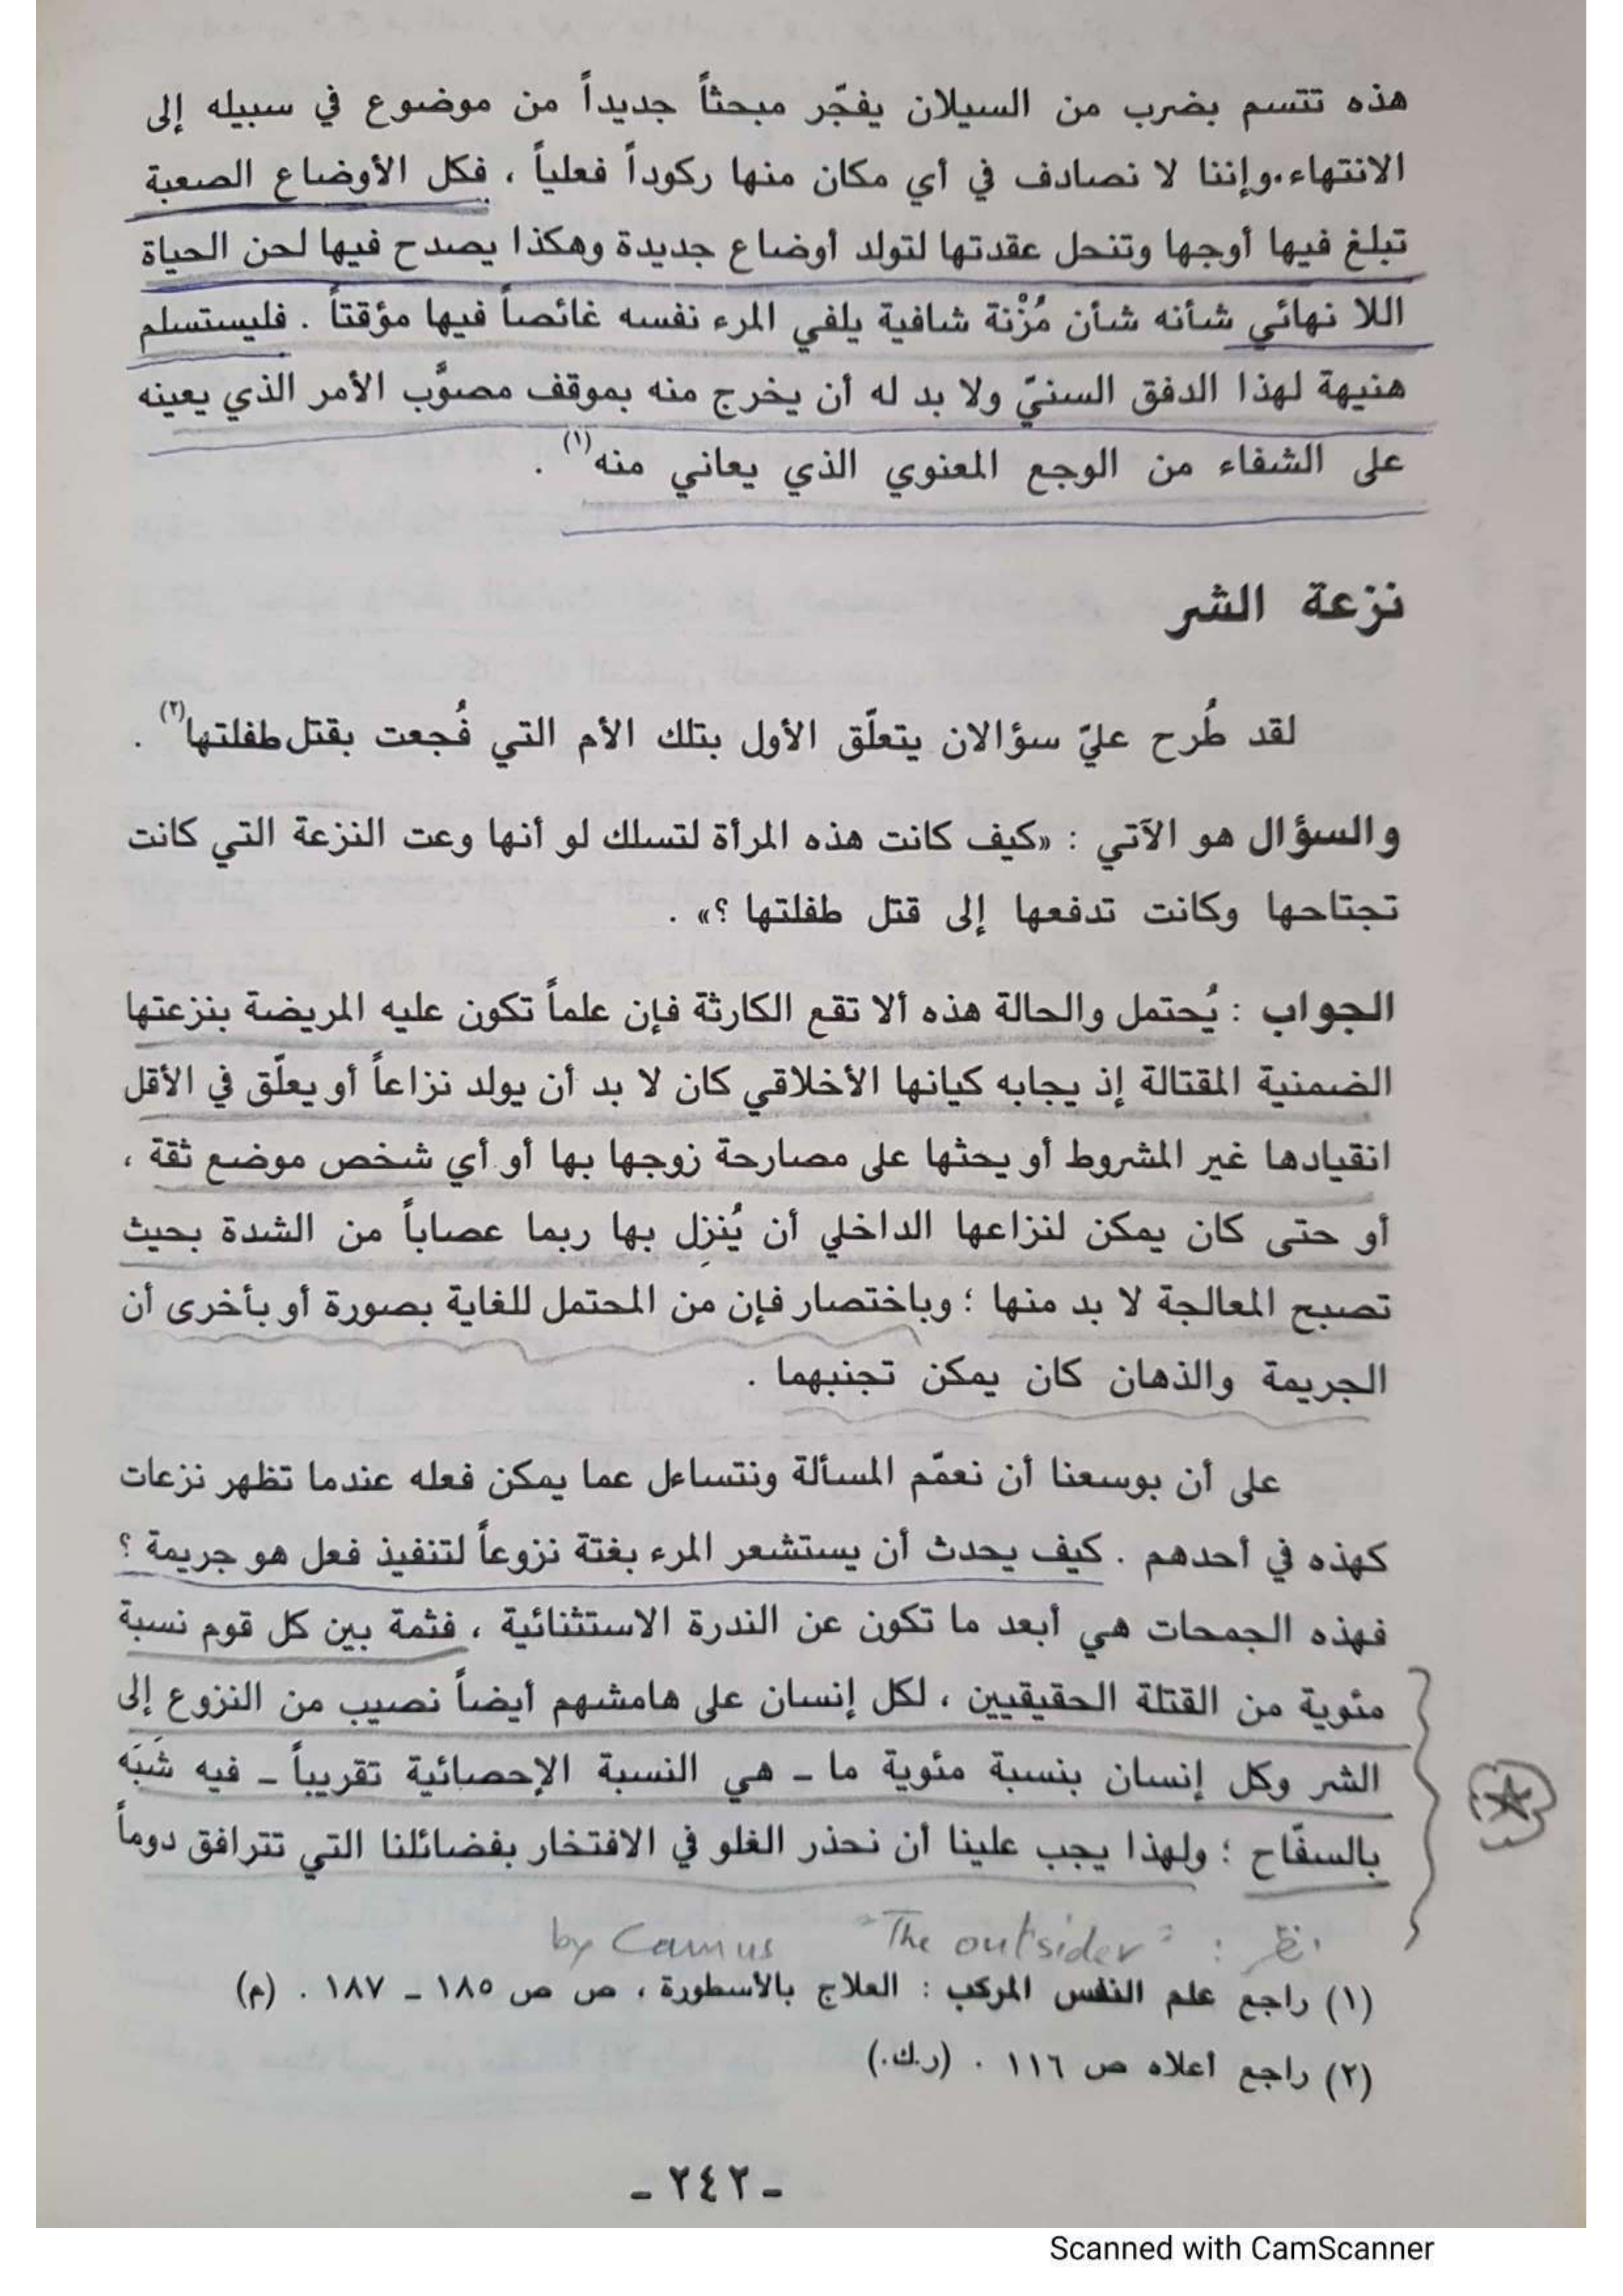 هذه تتسم بضرب من السيلان يفجّر مبحثاً جديداً من موضوع في سبيله إلى
الانتهاء. وإننا لا نصادف في أي مكان منها ركوداً فعلياً ، فكل الأوضاع الصعبة
تبلغ فيها أوجها وتنحل عقدتها لتولد أوضاع جديدة وهكذا يصدح فيها لحن الحياة
اللا نهائي شأنه شأن مُزْنة شافية يلفي المرء نفسه غائصاً فيها مؤقتاً . فليستسلم
هنيهة لهذا الدفق السنيّ ولا بد له أن يخرج منه بموقف مصوَّب الأمر الذي يعينه
على الشفاء من الوجع المعنوي الذي يعاني منه(١) .
نزعة الشر
لقد طُرح عليّ سؤالان يتعلّق الأول بتلك الأم التي فُجعت بقتل طفلتها(٢) .
والسؤال هو الآتي : «كيف كانت هذه المرأة لتسلك لو أنها وعت النزعة التي كانت
تجتاحها وكانت تدفعها إلى قتل طفلتها ؟» .
الجواب : يُحتمل والحالة هذه ألا تقع الكارثة فإن علماً تكون عليه المريضة بنزعتها
الضمنية المقتالة إذ يجابه كيانها الأخلاقي كان لا بد أن يولد نزاعاً أو يعلّق في الأقل
انقيادها غير المشروط أو يحثها على مصارحة زوجها بها أو أي شخص موضع ثقة ،
أو حتى كان يمكن لنزاعها الداخلي أن يُنزِل بها ربما عصاباً من الشدة بحيث
تصبح المعالجة لا بد منها ؛ وباختصار فإن من المحتمل للغاية بصورة أو بأخرى أن
الجريمة والذهان كان يمكن تجنبهما .
على أن بوسعنا أن نعمّم المسألة ونتساءل عما يمكن فعله عندما تظهر نزعات
كهذه في أحدهم . كيف يحدث أن يستشعر المرء بغتة نزوعاً لتنفيذ فعل هو جريمة ؟
فهذه الجمحات هي أبعد ما تكون عن الندرة الاستثنائية ، فثمة بين كل قوم نسبة
مئوية من القتلة الحقيقيين ، لكل إنسان على هامشهم أيضاً نصيب من النزوع إلى
الشر وكل إنسان بنسبة مئوية ما ـ هي النسبة الإحصائية تقريباً ـ فيه شَبَه
بالسفّاح ؛ ولهذا يجب علينا أن نحذر الغلو في الافتخار بفضائلنا التي تترافق دوماً
: "The outsider" by Camus
(١) راجع علم النفس المركب : العلاج بالأسطورة ، ص ص ١٨٥ ـ ١٨٧ . (م)
(٢) راجع أعلاه ص ١١٦ . (ر.ك.)
ـ ٢٤٢ ـ
Scanned with CamScanner